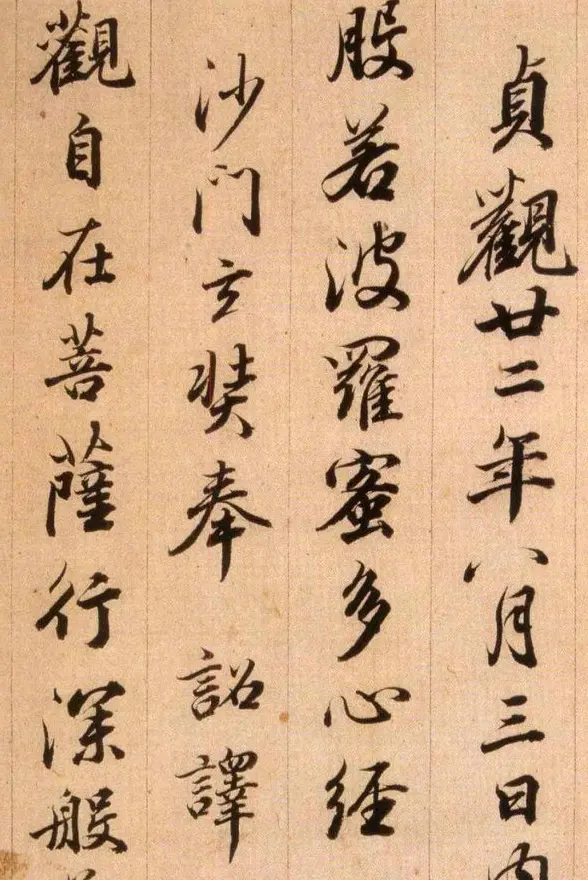 貞觀廿二年八月三日內
般若波羅蜜多心經
沙門玄奘奉 詔譯
觀自在菩薩行深般